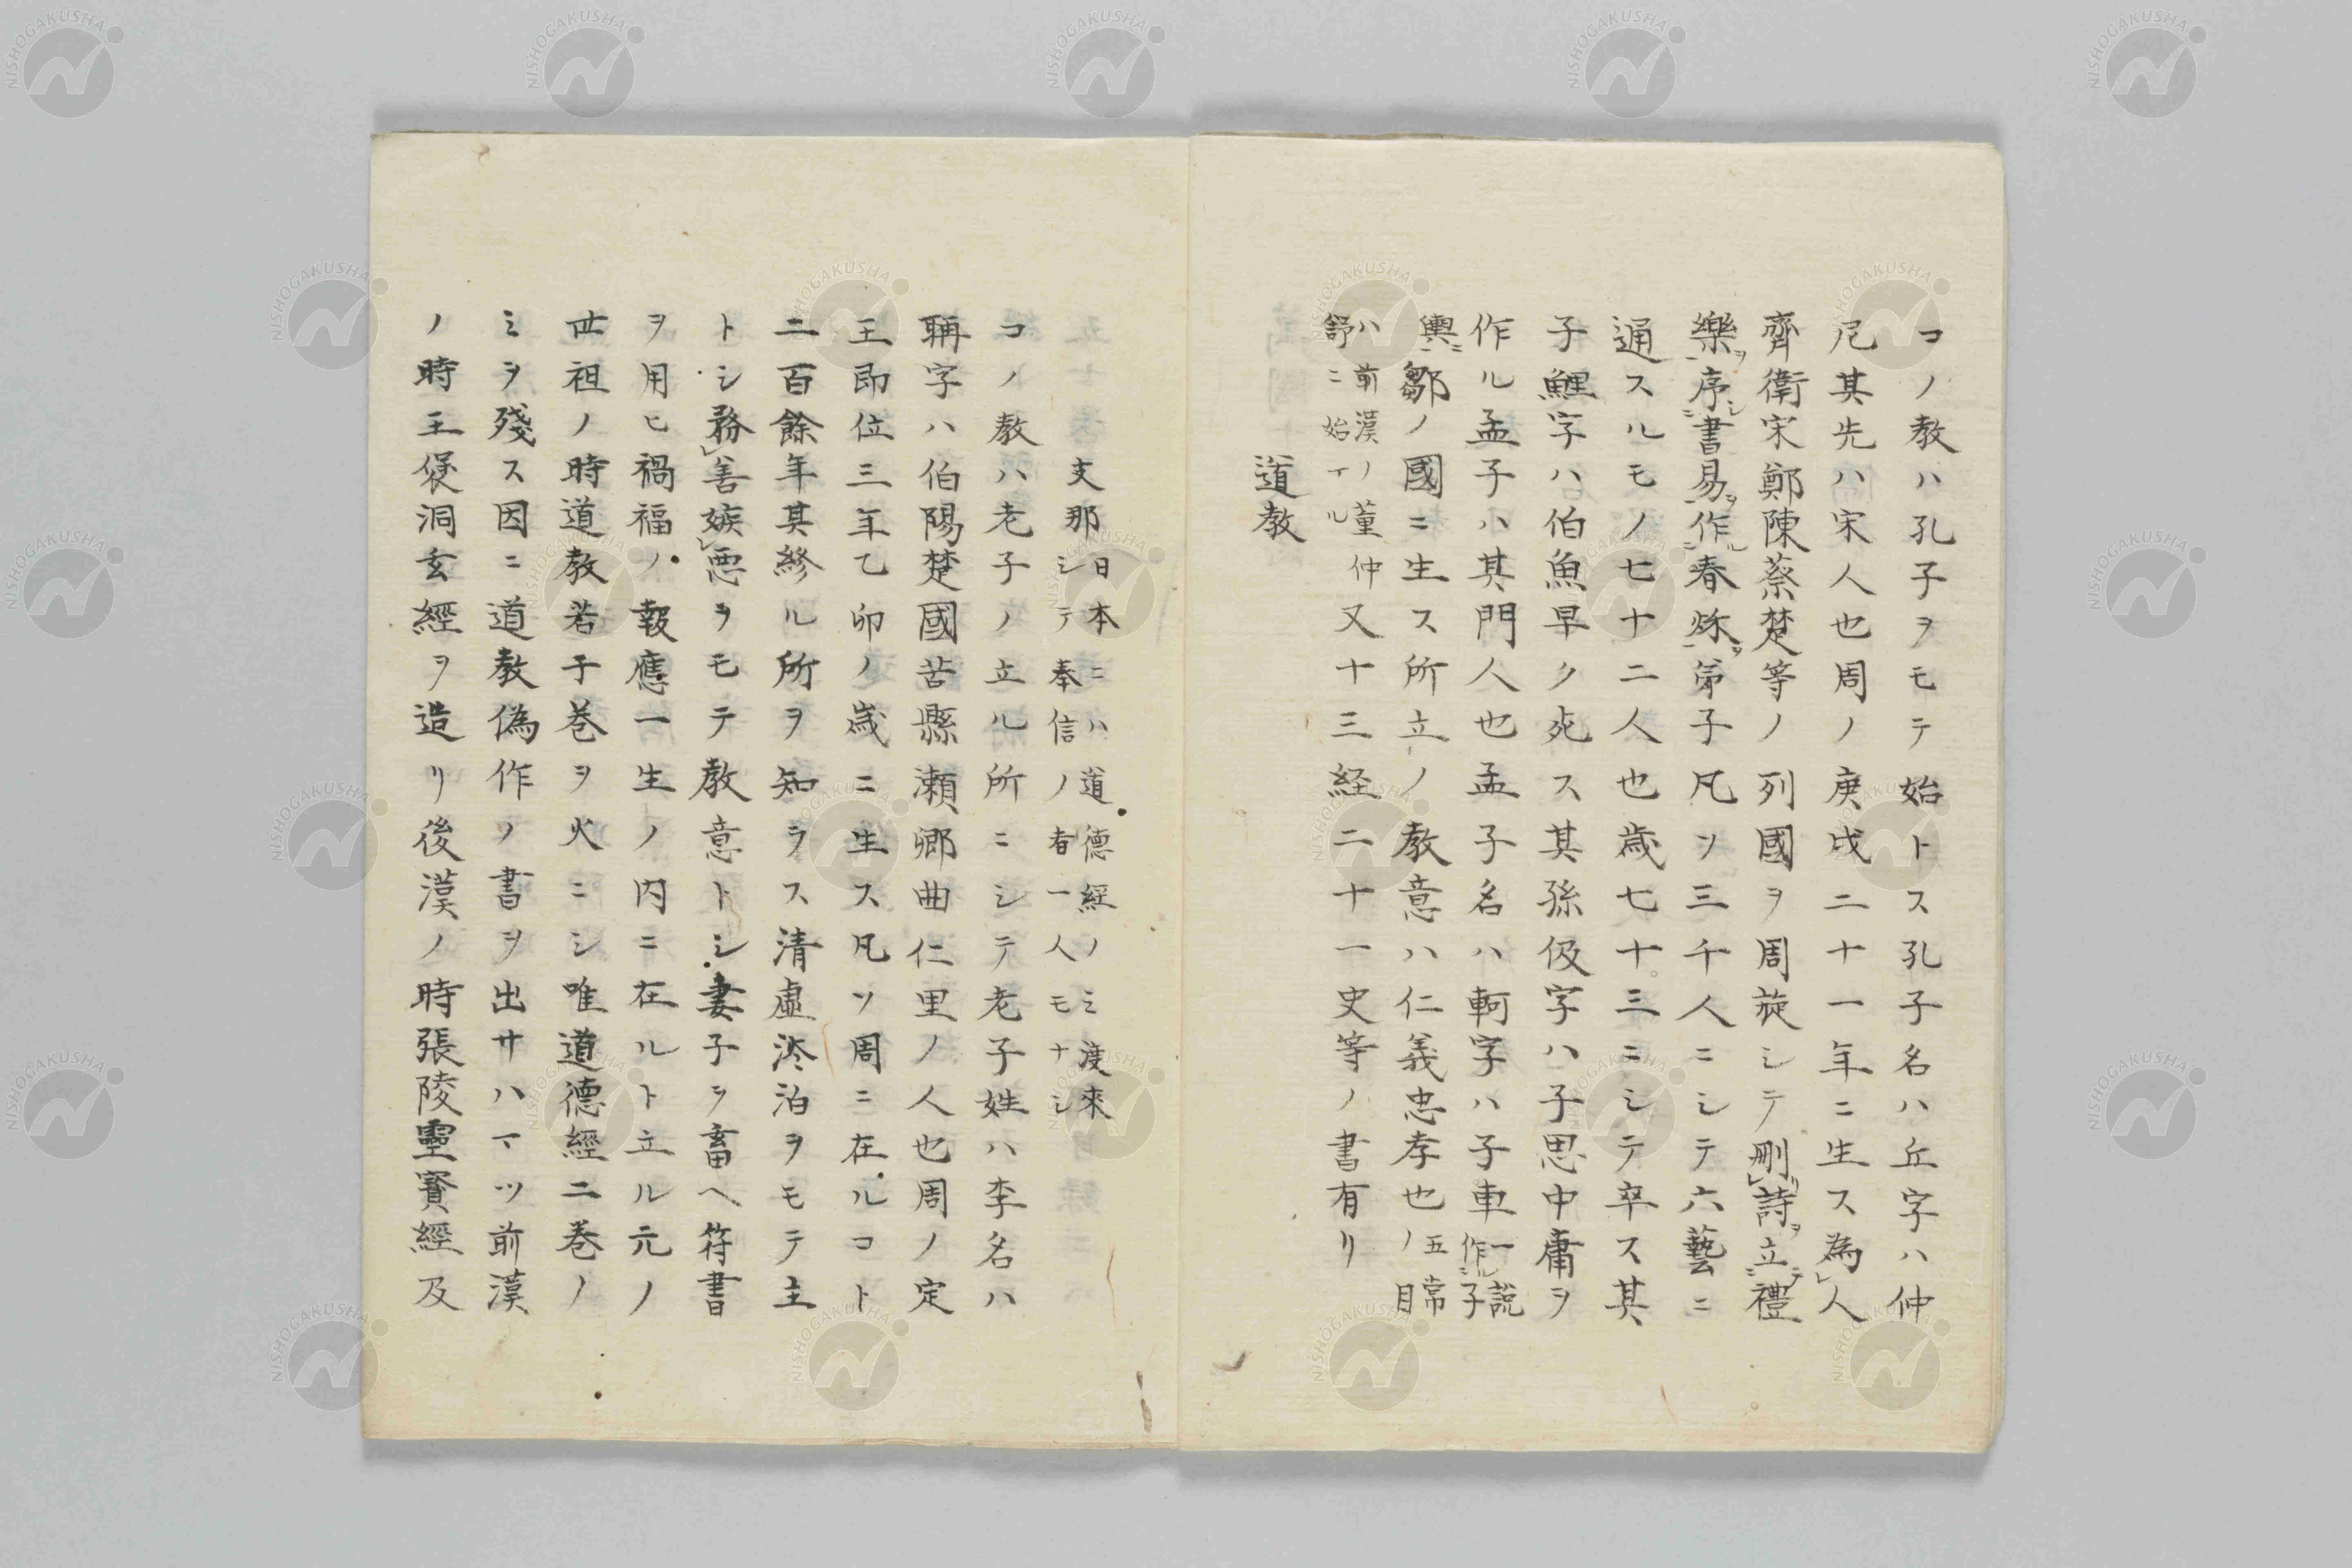 コノ教ハ孔子ヲモテ始トス孔子名ハ丘字ハ仲
尼其先ハ宋人也周ノ庚戌二十一年ニ生ス為人
齊衛宋鄭陳蔡楚等ノ列國ヲ周旋シテ刪詩立禮
樂序書易作春秌弟子凡ソ三千人ニシテ六藝ニ
通スルモノ七十二人也歳七十三ニシテ卒ス其
子鯉字ハ伯魚早ク死ス其孫伋字ハ子思中庸ヲ
作ル孟子ハ其門人也孟子名ハ軻字ハ子車一説作子
輿鄒ノ國ニ生ス所立ノ教意ハ仁義忠孝也五常ノ目
ハ前漢ノ董仲舒ニ始マル又十三経二十一史等ノ書有リ
道教
支那日本ニハ道德經ノミ渡來シテ奉信ノ者一人モナシ
コノ教ハ老子ノ立ル所ニシテ老子姓ハ李名ハ
聃字ハ伯陽楚國苦縣瀬鄉曲仁里ノ人也周ノ定
王即位三年乙卯ノ歳ニ生ス凡ソ周ニ在ルコト
二百餘年其終ル所ヲ知ラス清虛泊ヲモテ主
トシ務善嫉悪ヲモテ教意トシ妻子ヲ畜ヘ符書
ヲ用ヒ禍福ノ報應一生ノ内ニ在ルト立ル元ノ
世祖ノ時道教若干巻ヲ火ニシ唯道德經二巻ノ
ミヲ殘ス因ニ道教偽作ノ書ヲ出サハマツ前漢
ノ時王襃洞玄經ヲ造リ後漢ノ時張陵靈寶經及
NISHOGAKUSHA